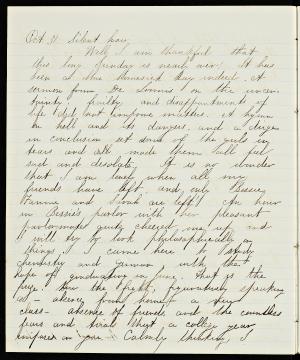 Oct. 31. Silent hour
Well, I am thankful that
this long Sunday is nearly over. It has
been a blue homesick day indeed. A
sermon from Dr. Loomis on the uncer-
tainty, frailty and disappointments of
life did not improve matters. A hymn
on hell and its dangers, and a dirge
in conclusion set some of the girls in
tears and all made them all feel
sad and desolate. It is no wonder
that I am lonely when all my
friends have left and only Bessie,
Fannie and Sarah are left! An hour
in Bessie's parlor with her pleasant
parlormates quite cheered me up and
I will try to look philosophically on
things. I came here to study
chemistry and german with the
hope of graduating in June. that is the
prize. Now the fight, figuratively speaking
is - absence from home; a new
class - absence of friends and the countless
fears and trials that a college year
imposes on you. Calmly thinking, I